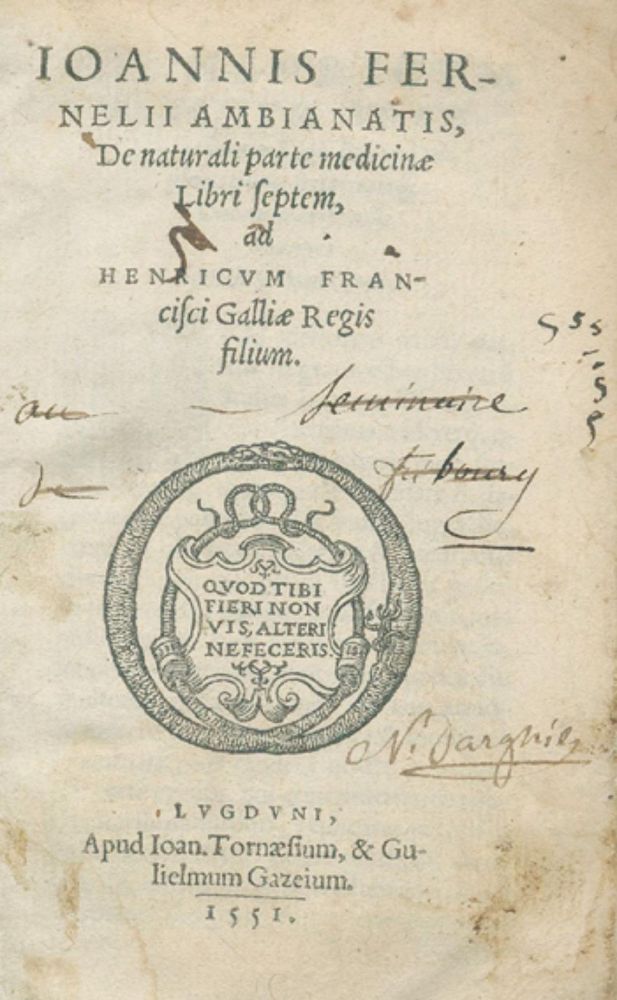 IOANNIS FER-
NELII AMBIANATIS,
De naturali parte medicinæ
Libri ſeptem,
ad
HENRICVM FRAN-
ciſci Galliæ Regis
filium.
au Seminaire
de
QVOD TIBI
FIERI NON
VIS, ALTERI
NE FECERIS.
LVGDVNI,
Apud Ioan. Tornæſium, & Gu-
lielmum Gazeium.
1551.